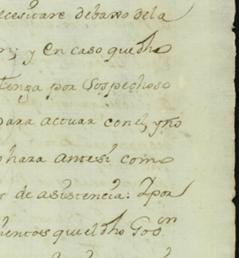 ecesitare debaxo de la
n; y en caso que dho
tenga por sospechoso
para actuar con el, y no
o hara ante si como
de asistencia: Y por
mentos que el dho Gov.on